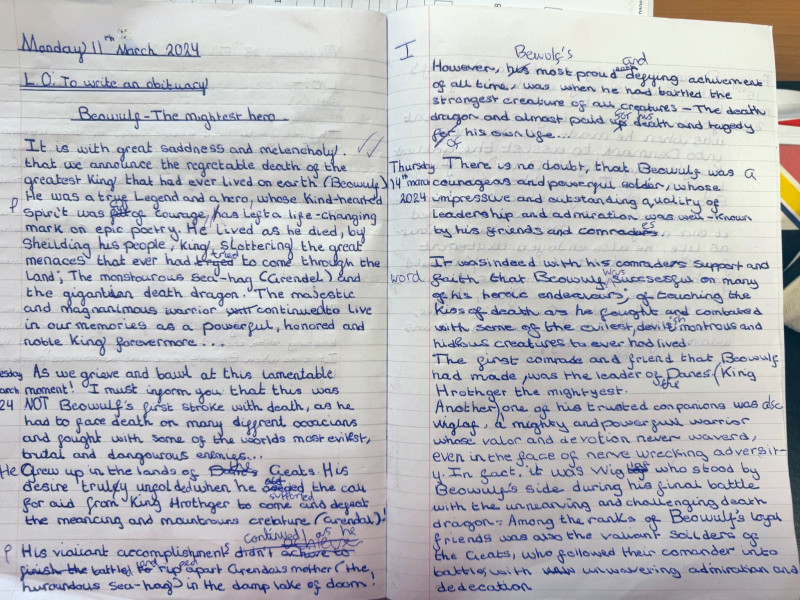 Monday 11th March 2024
L.O: To write an obituary
Beowulf - The mightest hero
It is with great saddness and melencholy.
that we announce the regretable death of the
greatest King that had ever lived on earth (Beowulf)
He was a true Legend and a hero, whose kind-hearted
P spirit was full of courage, has left a life-changing
mark on epic poetry. He lived as he died, by
sheilding his people, King, slottering the great
menaces that ever had tried to come through the
land; The monstourous sea-hag (Grendel) and
the gigantien death dragon. The majestic
and magnanimous warrior continued to live
in our memories as a powerful, honored and
noble King forevermore....
As we grieve and bawl at this lamentable
moment! I must inform you that this was
24 NOT Beowulf's first stroke with death, as he
had to face death on many different occacians
and fought with some of the worlds most evilest,
brutal and dangourous enemies...
He Grew up in the lands of the Geats. His
desire trulley uncolded when he the call
for aid from King Hrothger to come and defeat
the meancing and mountrouns creature (Grendal)!
P His vialiant accomplishments continued as he
battled and ripped apart Grendals mother (the
huroundous sea-hag) in the damp lake of doom!
I
However, Bewulf's most proud and defying achivement
of all time, was when he had battled the
strongest creature of all creatures - The death
dragon and almost paid for his death and tragedy
of his own life...
Thursday There is no doubt, that Beowulf was a
14th courageas and powerful solder, whose
2024 impressive and outstanding quality of
leadership and admiration was well-known
by his friends and comrades
It was indeed with his comraders support and
word faith that Beowulf was successful on many
of his heroic endeavours, of touching the
kiss of death as he fought and combated
with some of the evilest, devilish, montrous and
hidious creatures to ever had lived.
The first comrade and friend that Beowulf
had made, was the leader of the Danes. (King
Hrothger the mightyest.
Another one of his trusted conpanions was also
Wiglaf, a mighty and powerful warrior
whose valor and devotion never waverd,
even in the face of nerve wrecking adversit-
y. In fact, it was Wiglaf who stood by
Beowulf's side during his final battle
with the unneaving and challenging death
dragon. Among the ranks of Beowulf's loyal
friends was also the valiant soilders of
the Geats, who followed their comander into
battle, with unwavering admiration and
dedecation